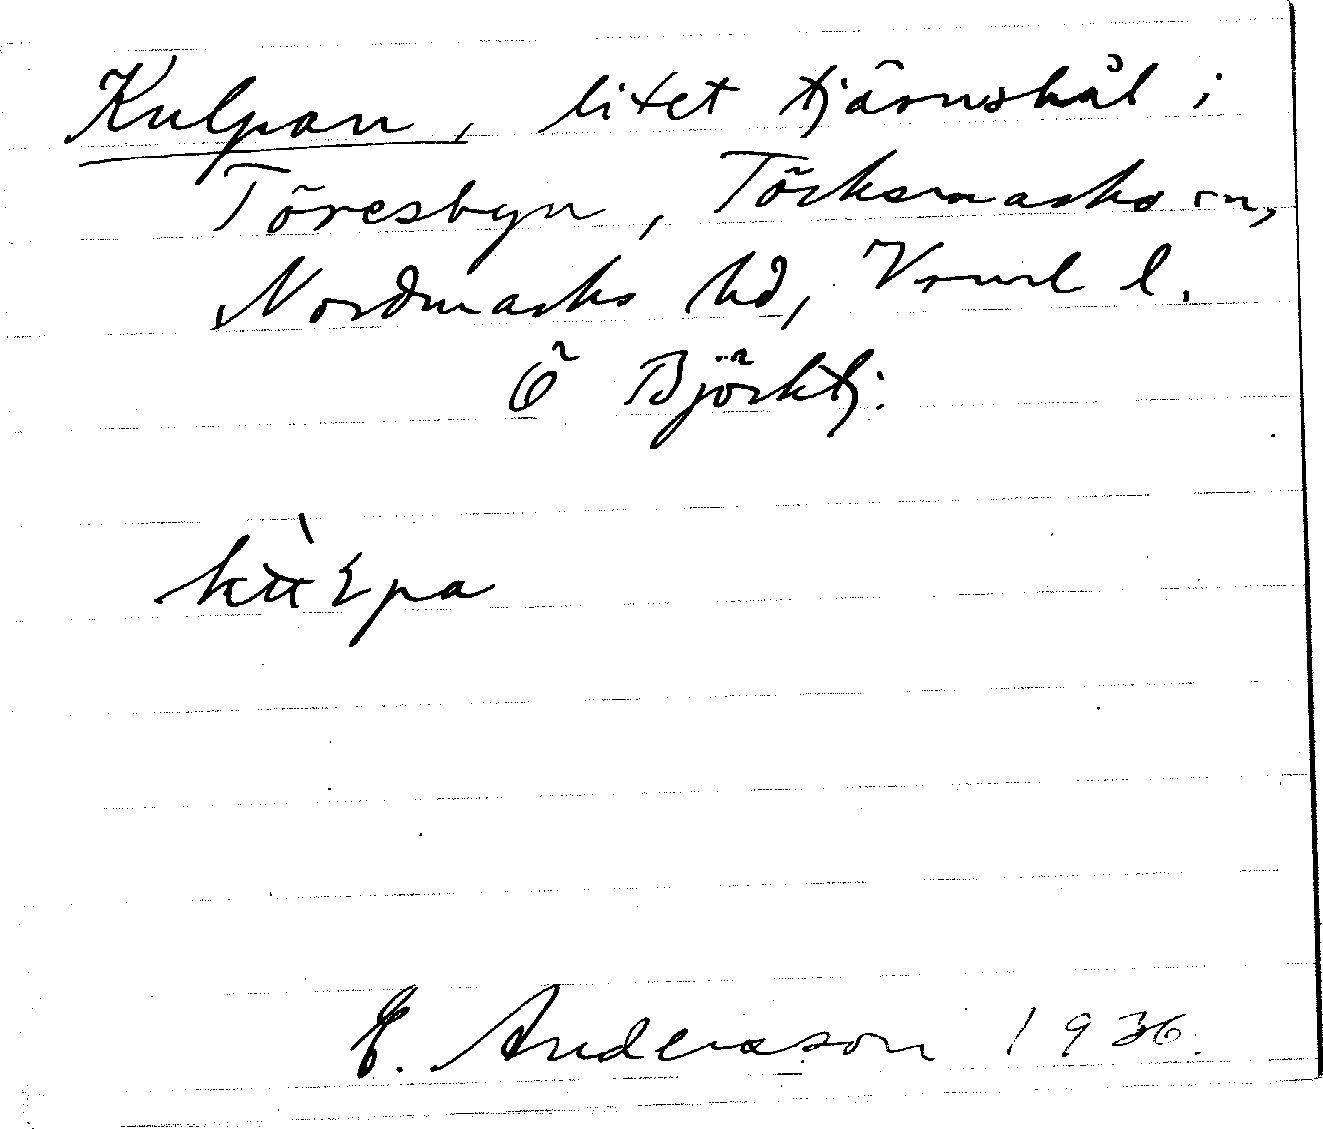 Kulpan, litet tjärnshål i
Töresbyn, Töcksmarks sn,
Nordmarks hd, Vrml l.
Ö Björktj:
E. Andersson 1936.